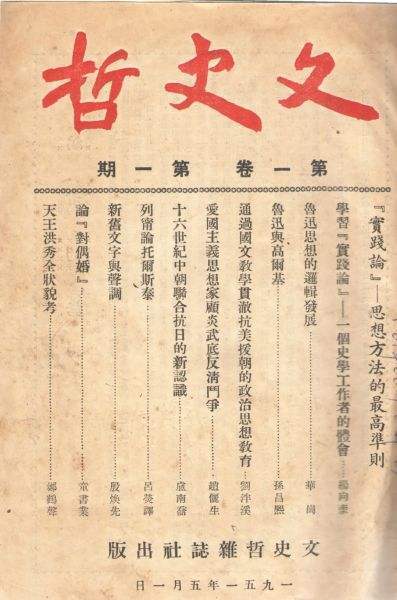 文史哲
第一卷 第一期
『實踐論』—思想方法的最高準則
學習『實踐論』—一個史學工作者的體會……楊向奎
魯迅思想的邏輯發展……華崗
魯迅與高爾基……孫昌熙
通過國文教學貫澈抗美援朝的政治思想教育……劉泮溪
愛國主義思想家顧炎武底反清鬥爭……趙儷生
十六世紀中朝聯合抗日的新認識……盧南喬
列甯論托爾斯泰……呂熒譯
新舊文字與聲調……殷煥先
論『對偶婚』……童書業
天王洪秀全狀貌考……鄭鶴聲
文史哲雜誌社出版
一九五一年五月一日